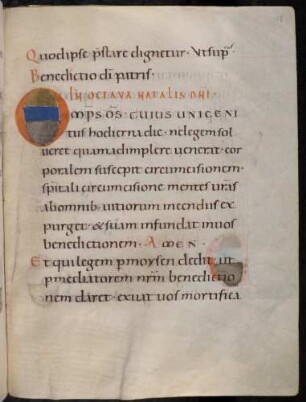 Quod ipse p̄stare dignetur. Vt sup̄
Benedictio dī patris.
IN OCTAVA NATALIS DNI.
OMPS D̄S. CUIUS UNIGENI
tus hodierna die. nelegem sol
ueret quam adimplere uenerat. cor
poralem suscepit circumcisionem.
sp̄itali circumcisione mentes ur̄as
ab omnib; uitiorum incendiis ex
purget. & suam infundat in uos
benedictionem. AMEN.
Et qui legem p moysen dedit. ut
p mediatorem nr̄m benedictio
nem daret. exuat uos mortifica